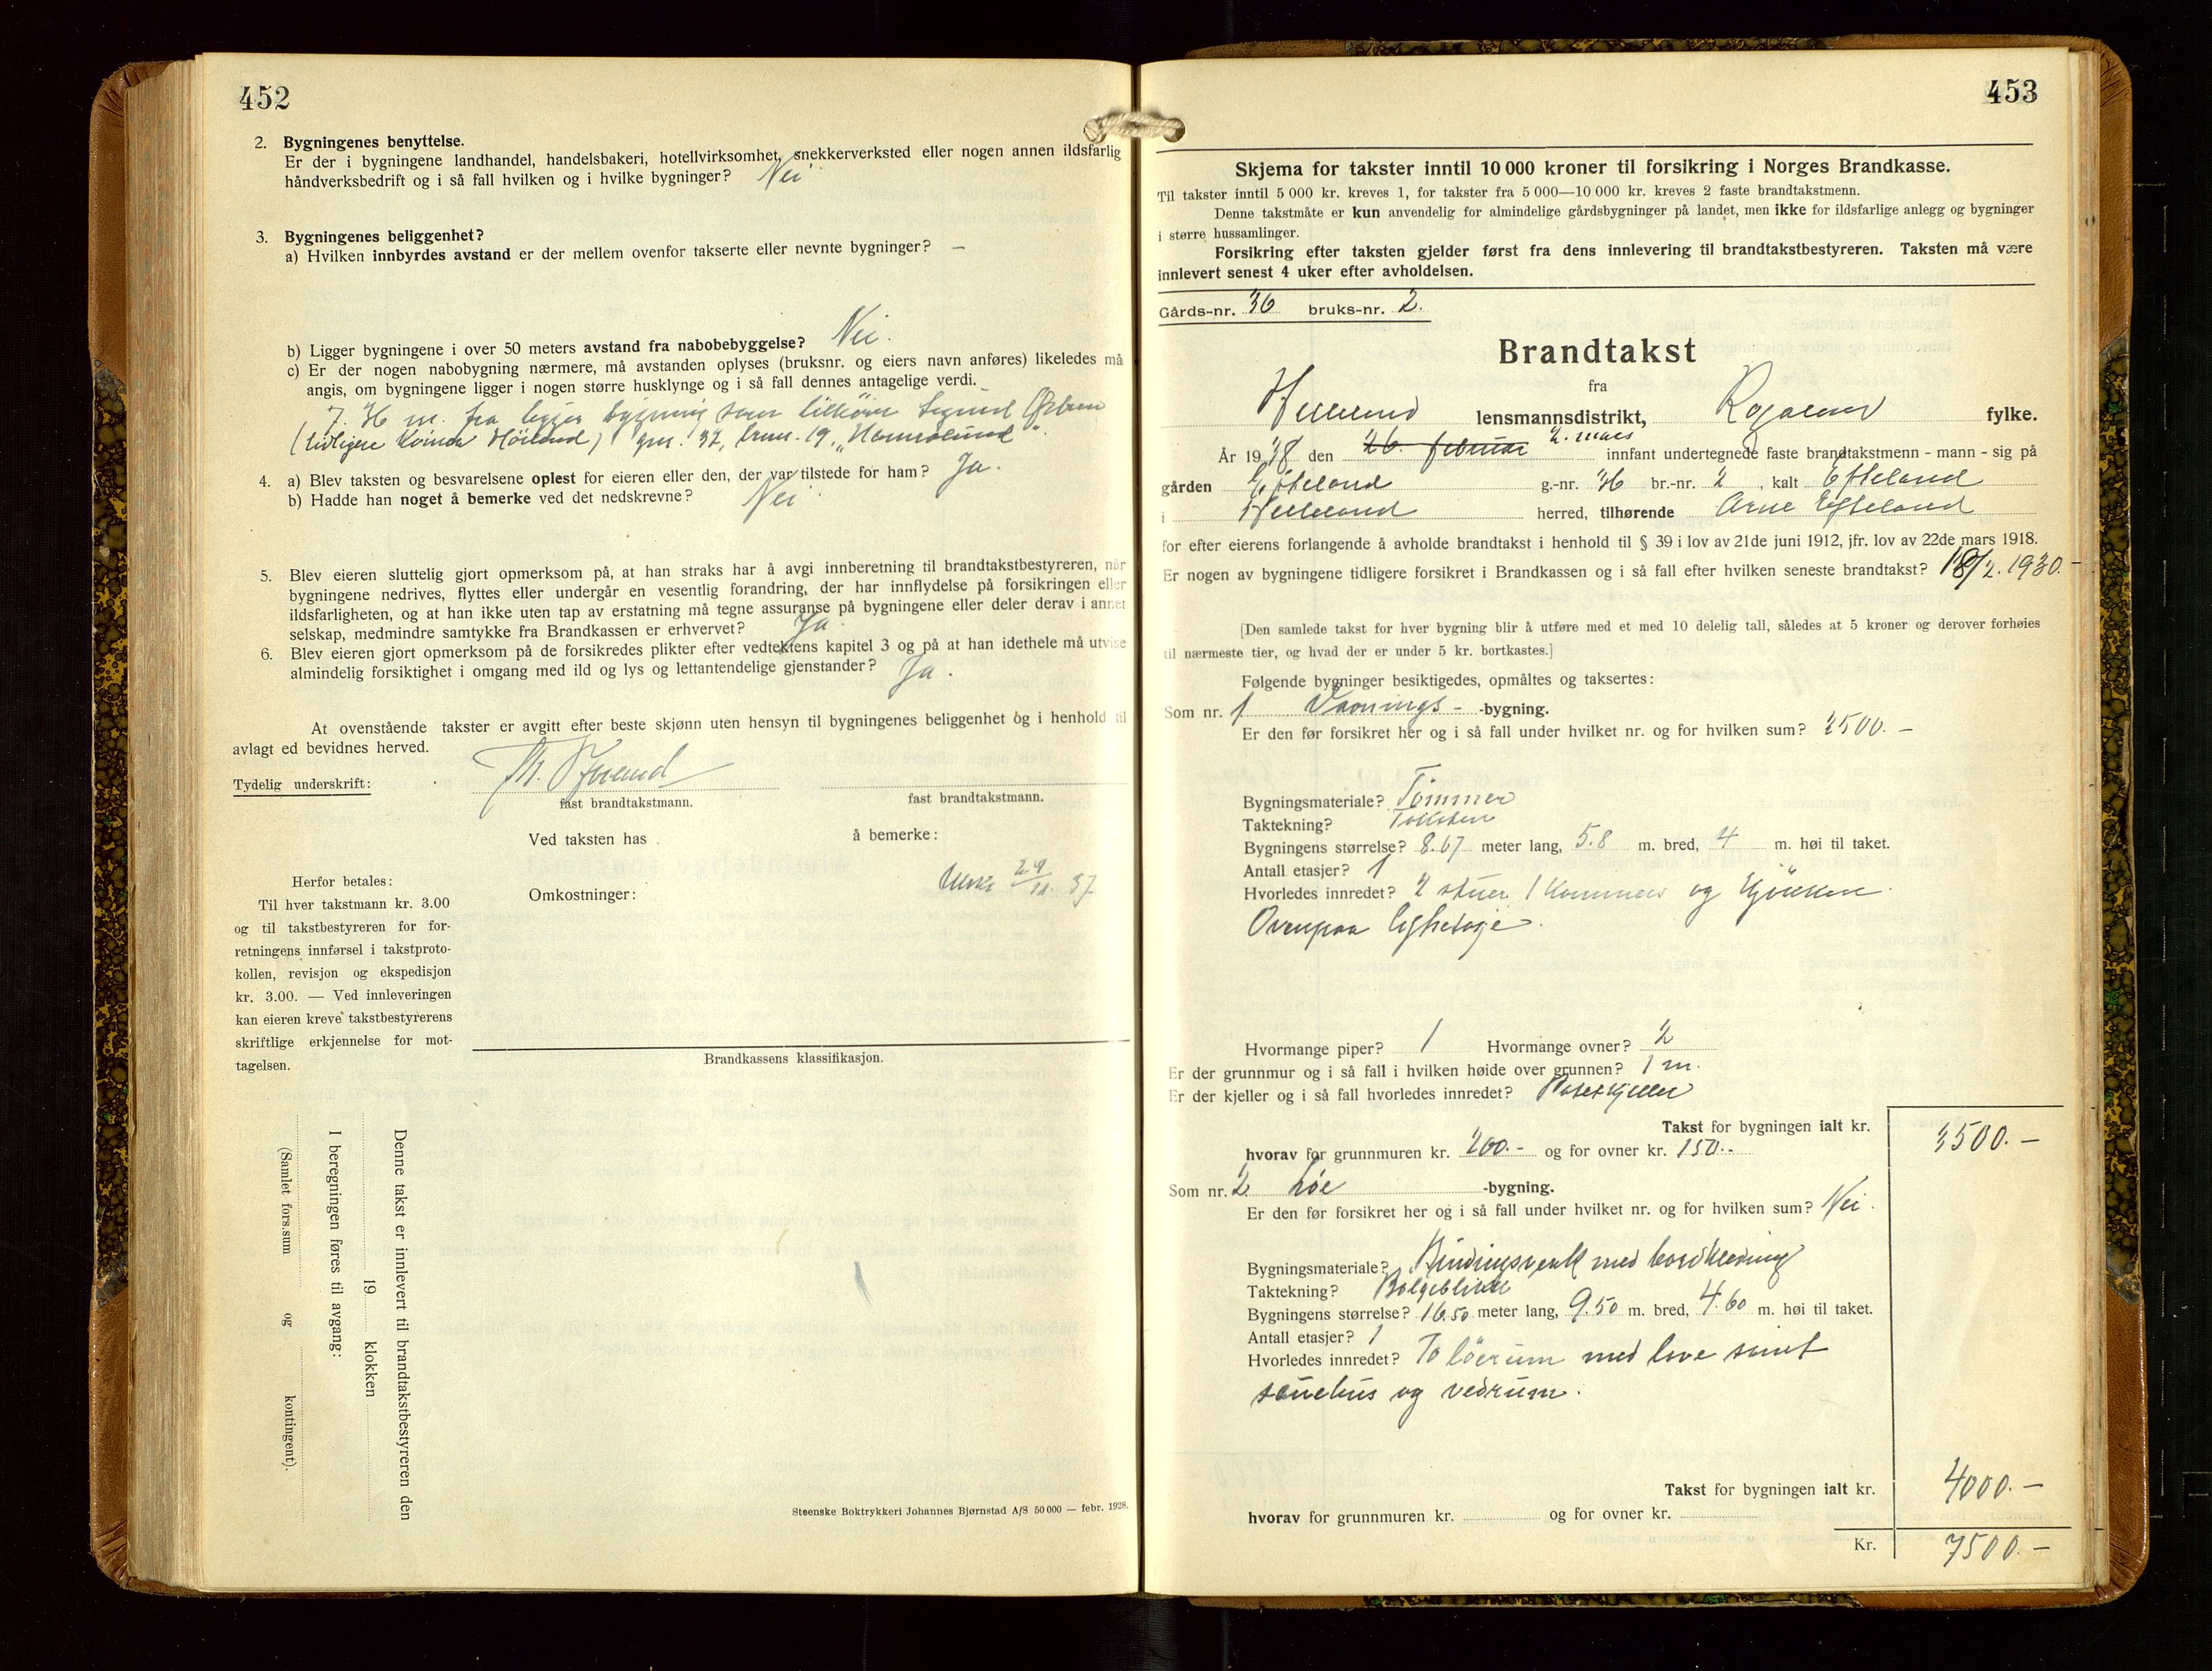 452
2. Bygningenes benyttelse.
Er der i bygningene landhandel, handelsbakeri, hotellvirksomhet, snekkerverksted eller nogen annen ildsfarlig
håndverksbedrift og i så fall hvilken og i hvilke bygninger? Nei
3. Bygningenes beliggenhet?
a) Hvilken innbyrdes avstand er der mellem ovenfor takserte eller nevnte bygninger? —
b) Ligger bygningene i over 50 meters avstand fra nabobebyggelse? Nei.
c) Er der nogen nabobygning nærmere, må avstanden oplyses (bruksnr. og eiers navn anføres) likeledes må
angis, om bygningene ligger i nogen større husklynge og i så fall dennes antagelige verdi.
7. 36 m. fra ligger bygning som tilhører
(tidligere Høiland) gnr. 37, brnr. 19
4. a) Blev taksten og besvarelsene oplest for eieren eller den, der var tilstede for ham? Ja.
b) Hadde han noget å bemerke ved det nedskrevne? Nei
5. Blev eieren sluttelig gjort opmerksom på, at han straks har å avgi innberetning til brandtakstbestyreren, når
bygningene nedrives, flyttes eller undergår en vesentlig forandring, der har innflydelse på forsikringen eller
ildsfarligheten, og at han ikke uten tap av erstatning må tegne assuranse på bygningene eller deler derav i annet
selskap, medmindre samtykke fra Brandkassen er erhvervet? Ja.
6. Blev eieren gjort opmerksom på de forsikredes plikter efter vedtektens kapitel 3 og på at han idethele må utvise
almindelig forsiktighet i omgang med ild og lys og lettantendelige gjenstander? Ja.
At ovenstående takster er avgitt efter beste skjønn uten hensyn til bygningenes beliggenhet og i henhold til
avlagt ed bevidnes herved.
Tydelig underskrift:
fast brandtakstmann. fast brandtakstmann.
Ved taksten has å bemerke:
Omkostninger:
Herfor betales:
Til hver takstmann kr. 3.00
og til takstbestyreren for for-
retningens innførsel i takstproto-
kollen, revisjon og ekspedisjon
kr. 3.00. — Ved innleveringen
kan eieren kreve takstbestyrerens
skriftlige erkjennelse for mot-
tagelsen.
Brandkassens klassifikasjon.
Denne takst er innlevert til brandtakstbestyreren den
19 klokken
I beregningen føres til avgang:
(Samlet fors.sum og kontingent).
Steenske Boktrykkeri Johannes Bjørnstad A/S 50 000 — febr. 1928.
453
Skjema for takster inntil 10 000 kroner til forsikring i Norges Brandkasse.
Til takster inntil 5 000 kr. kreves 1, for takster fra 5 000—10 000 kr. kreves 2 faste brandtakstmenn.
Denne takstmåte er kun anvendelig for almindelige gårdsbygninger på landet, men ikke for ildsfarlige anlegg og bygninger
i større hussamlinger.
Forsikring efter taksten gjelder først fra dens innlevering til brandtakstbestyreren. Taksten må være
innlevert senest 4 uker efter avholdelsen.
Gårds-nr. 36 bruks-nr. 2.
Brandtakst
fra
Helleland lensmannsdistrikt, Rogaland fylke.
År 1938 den 26. februar 2. mars innfant undertegnede faste brandtakstmenn - mann - sig på
gården Efteland g.-nr. 36 br.-nr. 2, kalt Efteland
i Helleland herred, tilhørende Arne Efteland
for efter eierens forlangende å avholde brandtakst i henhold til § 39 i lov av 21de juni 1912, jfr. lov av 22de mars 1918.
Er nogen av bygningene tidligere forsikret i Brandkassen og i så fall efter hvilken seneste brandtakst? 18/2. 1930.-
[Den samlede takst for hver bygning blir å utføre med et med 10 delelig tall, således at 5 kroner og derover forhøies
til nærmeste tier, og hvad der er under 5 kr. bortkastes.]
Følgende bygninger besiktigedes, opmåltes og taksertes:
Som nr. 1 Vaanings- -bygning.
Er den før forsikret her og i så fall under hvilket nr. og for hvilken sum? 2500.—
Bygningsmateriale? Tømmer
Taktekning?
Bygningens størrelse? 8.67 meter lang, 5.8 m. bred, 4 m. høi til taket.
Antall etasjer? 1
Hvorledes innredet? 2 stuer 1 kammers og kjøkken.
Ovenpaa
Hvormange piper? 1 Hvormange ovner? 2
Er der grunnmur og i så fall i hvilken høide over grunnen? 1 m.
Er der kjeller og i så fall hvorledes innredet? Potetkjeller
Takst for bygningen ialt kr. 3500.—
hvorav for grunnmuren kr. 200.- og for ovner kr. 150.-
Som nr. 2 Løe -bygning.
Er den før forsikret her og i så fall under hvilket nr. og for hvilken sum? Nei.
Bygningsmateriale? Bindingsverk med bordklædning
Taktekning? Bølgeblikk
Bygningens størrelse? 16.50 meter lang, 9.50 m. bred, 4.60 m. høi til taket.
Antall etasjer? 1
Hvorledes innredet? To løerum med love samt
sauehus og vedrum.
Takst for bygningen ialt kr. 4000.—
hvorav for grunnmuren kr. og for ovner kr.
Kr. 7500.—